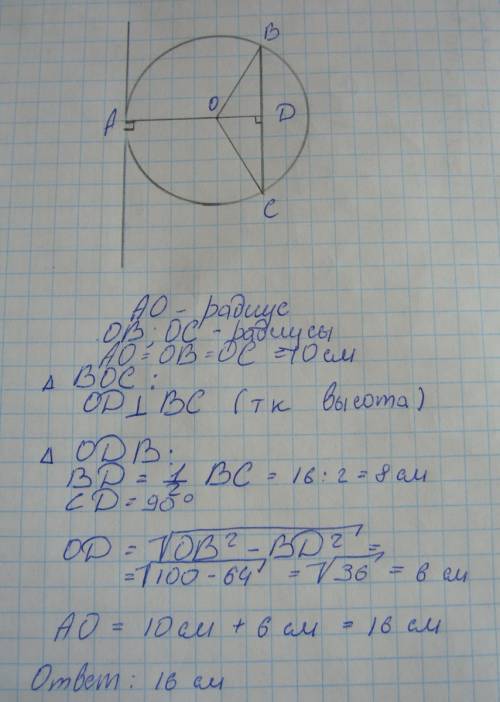 B
A
O
D
C
AO - радиус
OB; OC - радиусы
AO = OB = OC = 10 см
Δ BOC:
OD ⊥ BC (тк высота)
Δ ODB:
BD = 1/2 BC = 16 : 2 = 8 см
∠D = 90°
OD = √OB² - BD² =
= √100 - 64 = √36 = 6 см
AO = 10 см + 6 см = 16 см
Ответ: 16 см